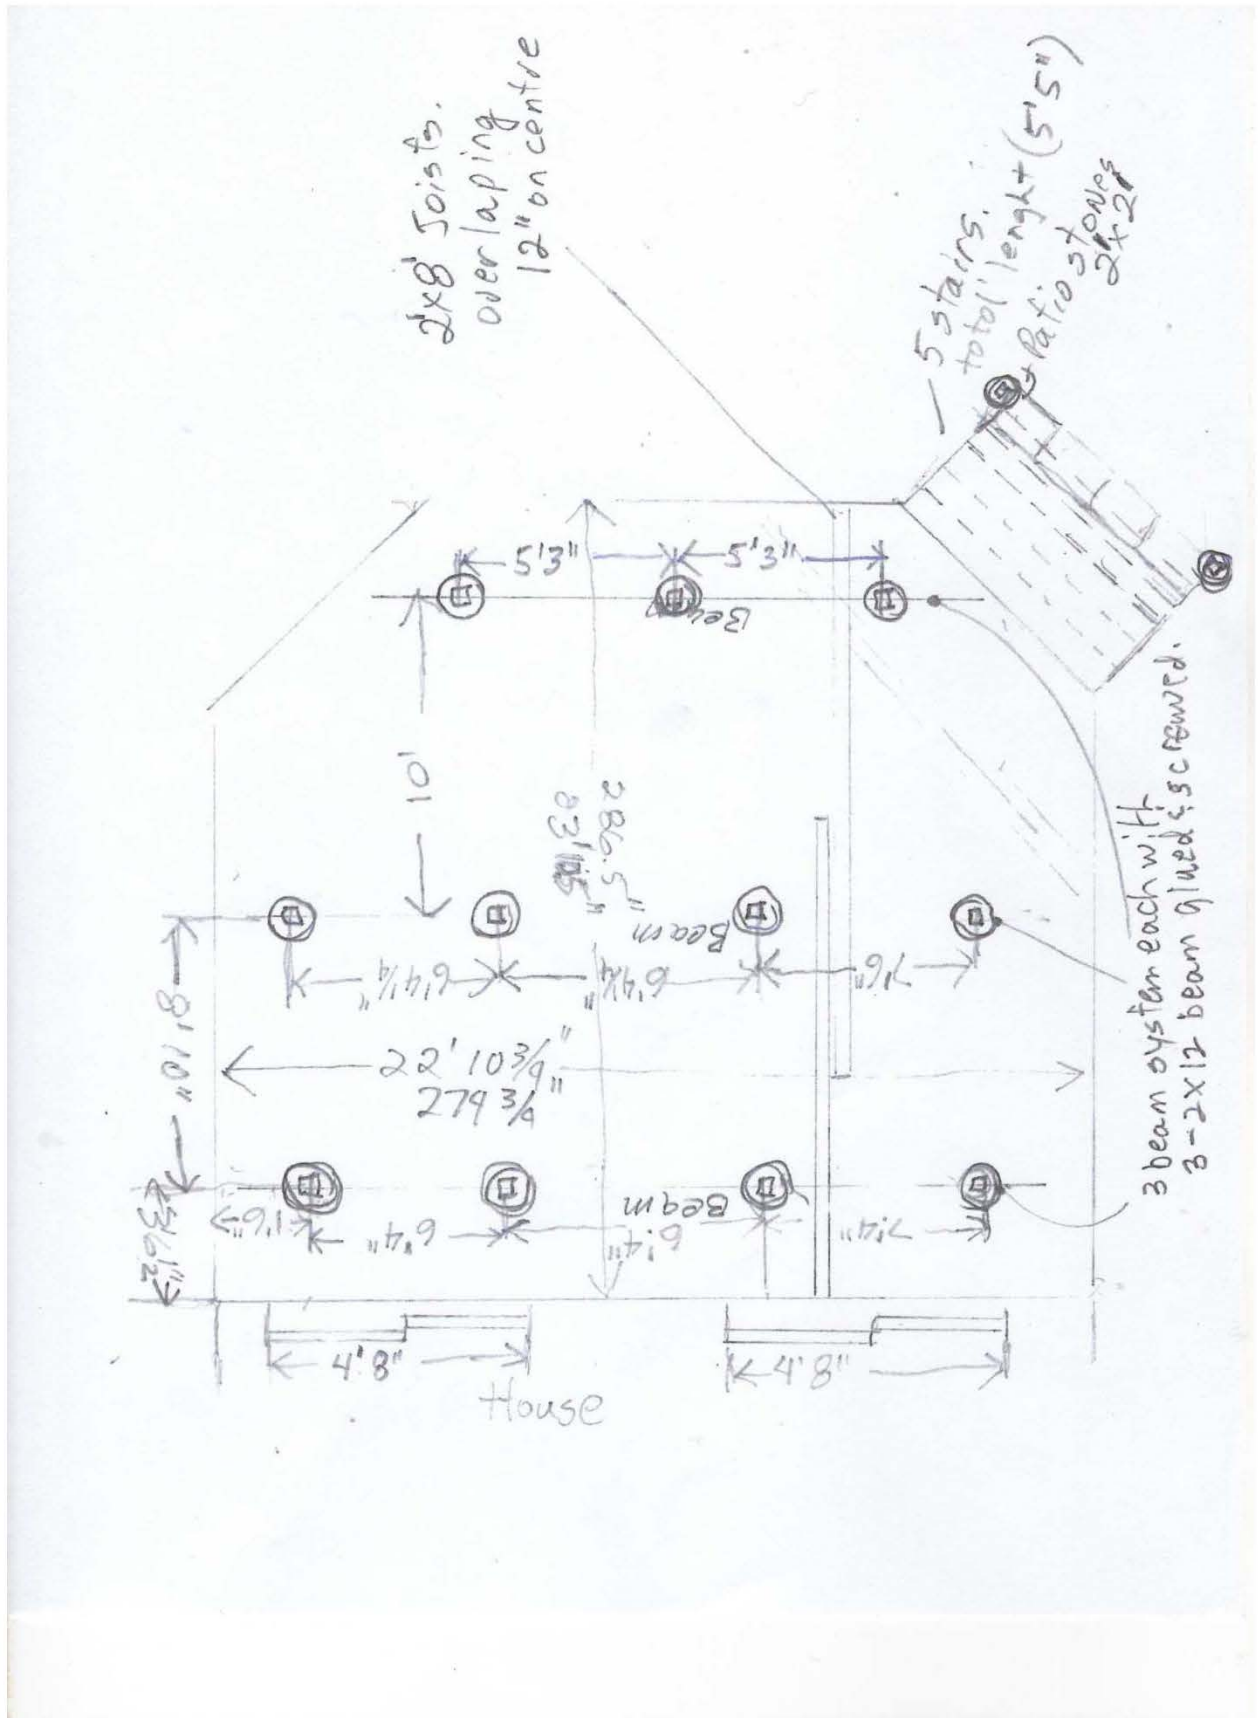 2'x8' Joists.
overlaping
12" on centre
5 stairs.
total lenght (5'5")
Patio stones
2'x2'
5'3"
5'3"
Beam
10'
286.5"
Beam
6'4¼"
6'4¼"
7'6"
8'10"
22' 10¾"
274 ¾"
3 beam system each with
3-2x12 beam glued & screwed.
Beam
1'6"
6'4"
6'4"
7'4"
4'8"
4'8"
House